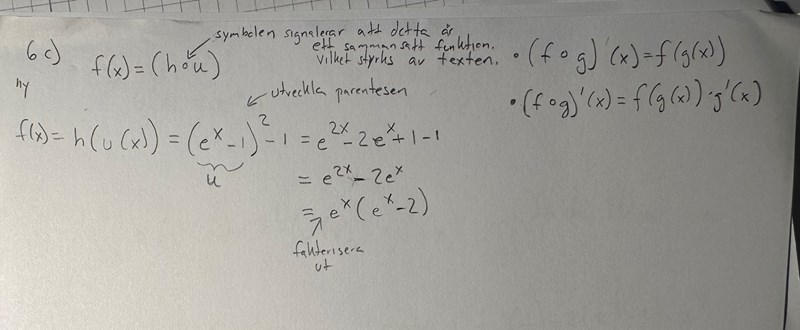 6c)
symbolen signalerar att detta är
ett sammansatt funktion.
vilket styrks av texten.
f(x) = (h∘u)
• (f∘g)'(x) = f(g(x))
• (f∘g)'(x) = f(g(x))·g'(x)
ny
utveckla parentesen
f(x) = h(u(x)) = (eˣ-1)² -1 = e²ˣ - 2eˣ + 1 - 1
u
= e²ˣ - 2eˣ
= eˣ(eˣ-2)
faktorisera
ut